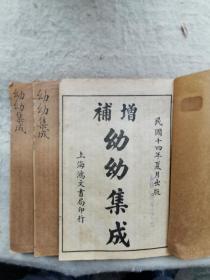 民國十四年夏月出版
增補
幼幼集成
上海鴻文書局印行
幼幼集成
幼幼集成